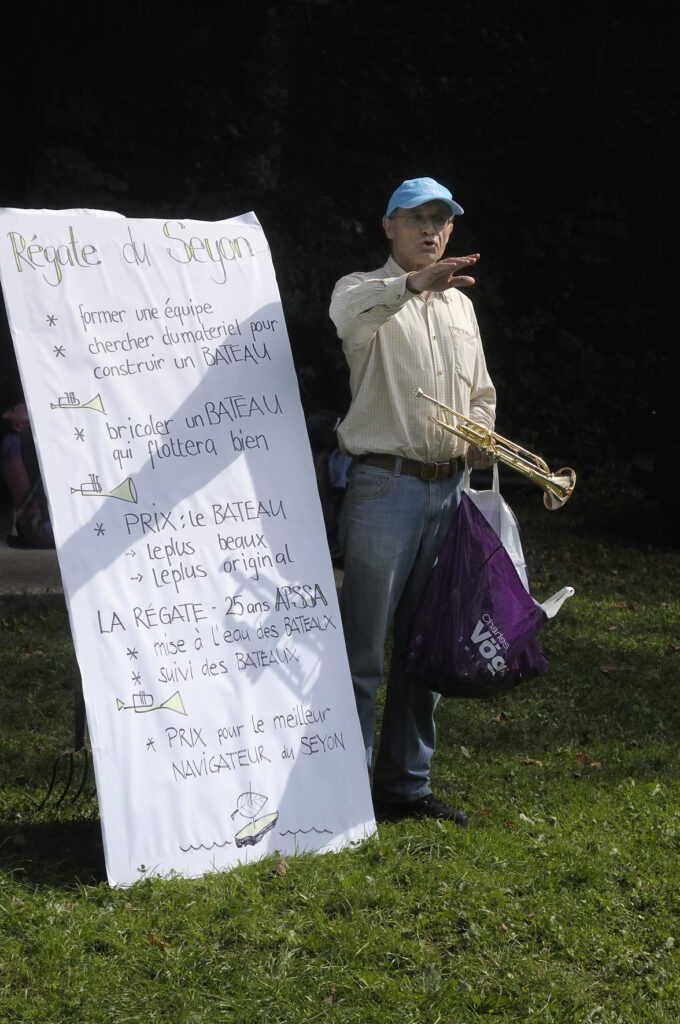 Régate du Seyon
* former une équipe
* chercher du materiel pour
construire un BATEAU
* bricoler un BATEAU
qui flottera bien
* PRIX : le BATEAU
→ le plus beaux
→ le plus original
LA RÉGATE - 25 ans APSSA
* mise à l'eau des BATEAUX
* suivi des BATEAUX
* PRIX pour le meilleur
NAVIGATEUR du SEYON
Charles
Vög